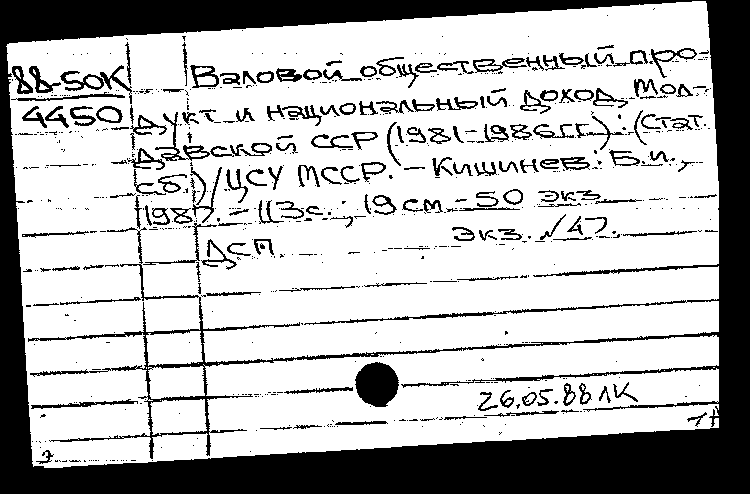 88-50К
4450
Валовой общественный про-
дукт и национальный доход Мол-
давской ССР (1981-1986гг.) : (Стат.
сб.) / ЦСУ МССР. - Кишинев : Б.и.,
1987. - 113с. ; 19 см - 50 экз.
ДСП. экз. №47.
26.05.88 ЛК